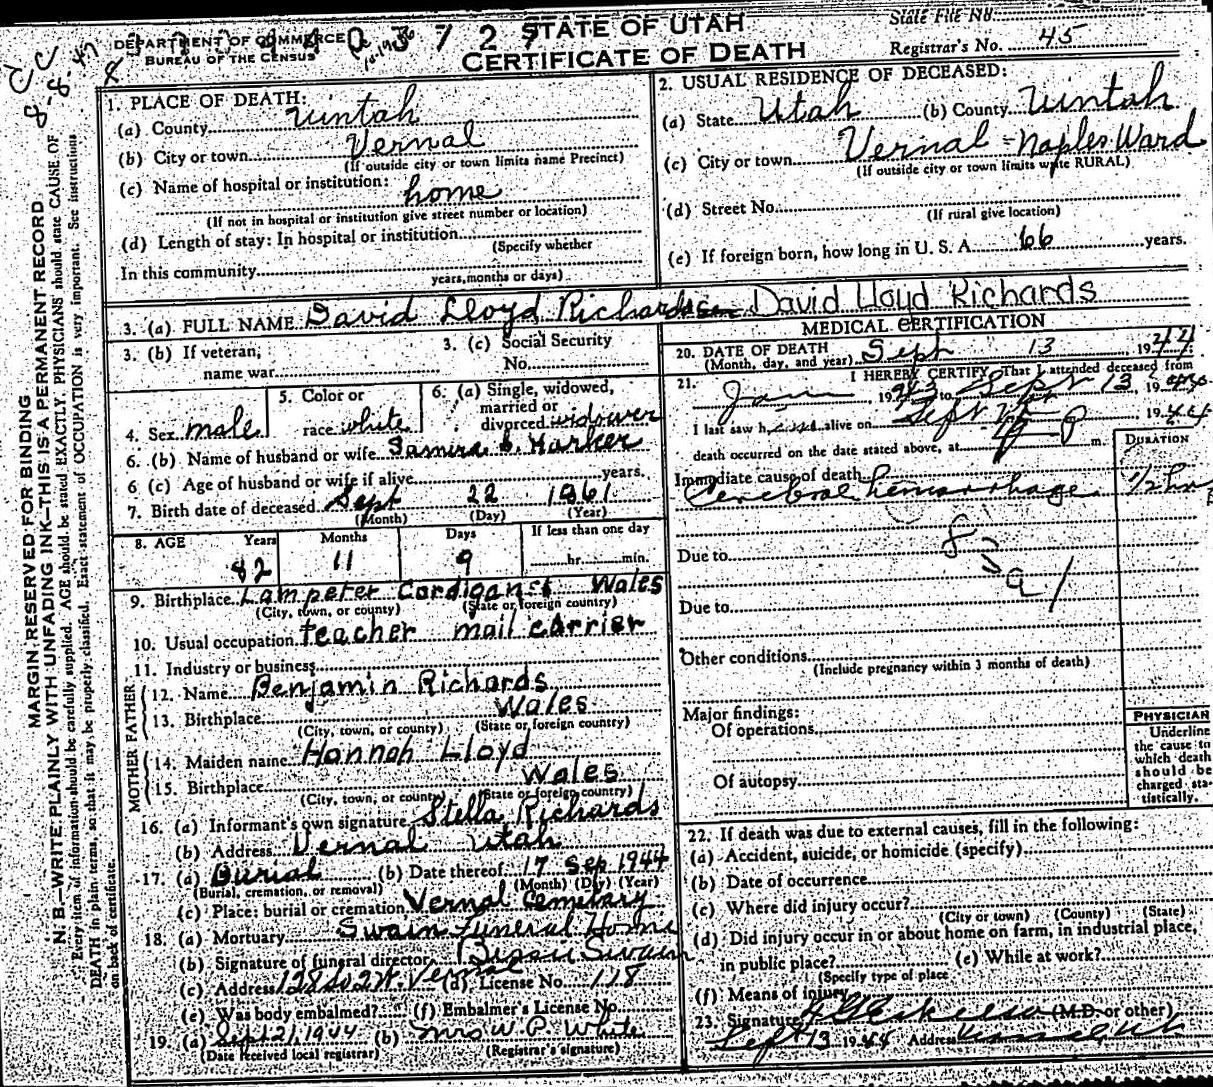 DEPARTMENT OF COMMERCE
BUREAU OF THE CENSUS
STATE OF UTAH
CERTIFICATE OF DEATH
State File No.
Registrar's No. 45
8-8-47
MARGIN RESERVED FOR BINDING
N. B.—WRITE PLAINLY WITH UNFADING INK—THIS IS A PERMANENT RECORD
Every item of information should be carefully supplied. AGE should be stated EXACTLY. PHYSICIANS should state CAUSE OF
DEATH in plain terms, so that it may be properly classified. Exact statement of OCCUPATION is very important. See instructions
on back of certificate.
1. PLACE OF DEATH:
(a) County Uintah
(b) City or town Vernal
(If outside city or town limits name Precinct)
(c) Name of hospital or institution:
home
(If not in hospital or institution give street number or location)
(d) Length of stay: In hospital or institution
(Specify whether
In this community
years, months or days)
2. USUAL RESIDENCE OF DECEASED:
(a) State Utah (b) County Uintah
(c) City or town Vernal - Naples Ward
(If outside city or town limits write RURAL)
(d) Street No.
(If rural give location)
(e) If foreign born, how long in U. S. A. 66 years.
3. (a) FULL NAME David Lloyd Richardson David Lloyd Richards
3. (b) If veteran,
name war
3. (c) Social Security
No.
4. Sex male
5. Color or
race white
6. (a) Single, widowed,
married or
divorced widower
6. (b) Name of husband or wife Harker
6 (c) Age of husband or wife if alive years.
7. Birth date of deceased Sept 22 1861
(Month) (Day) (Year)
8. AGE Years Months Days If less than one day
82 11 9 hr. min.
9. Birthplace Lampeter Wales
(City, town, or county) (State or foreign country)
10. Usual occupation teacher mail carrier
11. Industry or business
FATHER
12. Name Benjamin Richards
13. Birthplace Wales
(City, town, or county) (State or foreign country)
MOTHER
14. Maiden name Hannah Lloyd
15. Birthplace Wales
(City, town, or county) (State or foreign country)
16. (a) Informant's own signature Stella Richards
(b) Address Vernal Utah
17. (a) Burial (b) Date thereof 17 Sep 1944
(Burial, cremation, or removal) (Month) (Day) (Year)
(c) Place: burial or cremation Vernal Cemetary
18. (a) Mortuary Swain Funeral Home
(b) Signature of funeral director Swain
(c) Address 128 So 2 W. Vernal (d) License No. 118
(e) Was body embalmed? (f) Embalmer's License No.
19. (a) Sept 21, 1944 (b) Mrs W. P. White
(Date received local registrar) (Registrar's signature)
MEDICAL CERTIFICATION
20. DATE OF DEATH
(Month, day, and year) Sept 13 1944
21. I HEREBY CERTIFY, That I attended deceased from
Jan 1943 to Sept 13 19
I last saw h alive on Sept 1944
death occurred on the date stated above, at P m.
DURATION
Immediate cause of death
Cerebral hemorrhage 1/2 hr
Due to
Due to
Other conditions
(Include pregnancy within 3 months of death)
Major findings:
Of operations
Of autopsy
PHYSICIAN
Underline
the cause to
which death
should be
charged sta-
tistically.
22. If death was due to external causes, fill in the following:
(a) Accident, suicide, or homicide (specify)
(b) Date of occurrence
(c) Where did injury occur?
(City or town) (County) (State)
(d) Did injury occur in or about home on farm, in industrial place,
in public place? (e) While at work?
(Specify type of place
(f) Means of injury
23. Signature (M.D. or other)
Sept 13 1944 Address Vernal, Ut